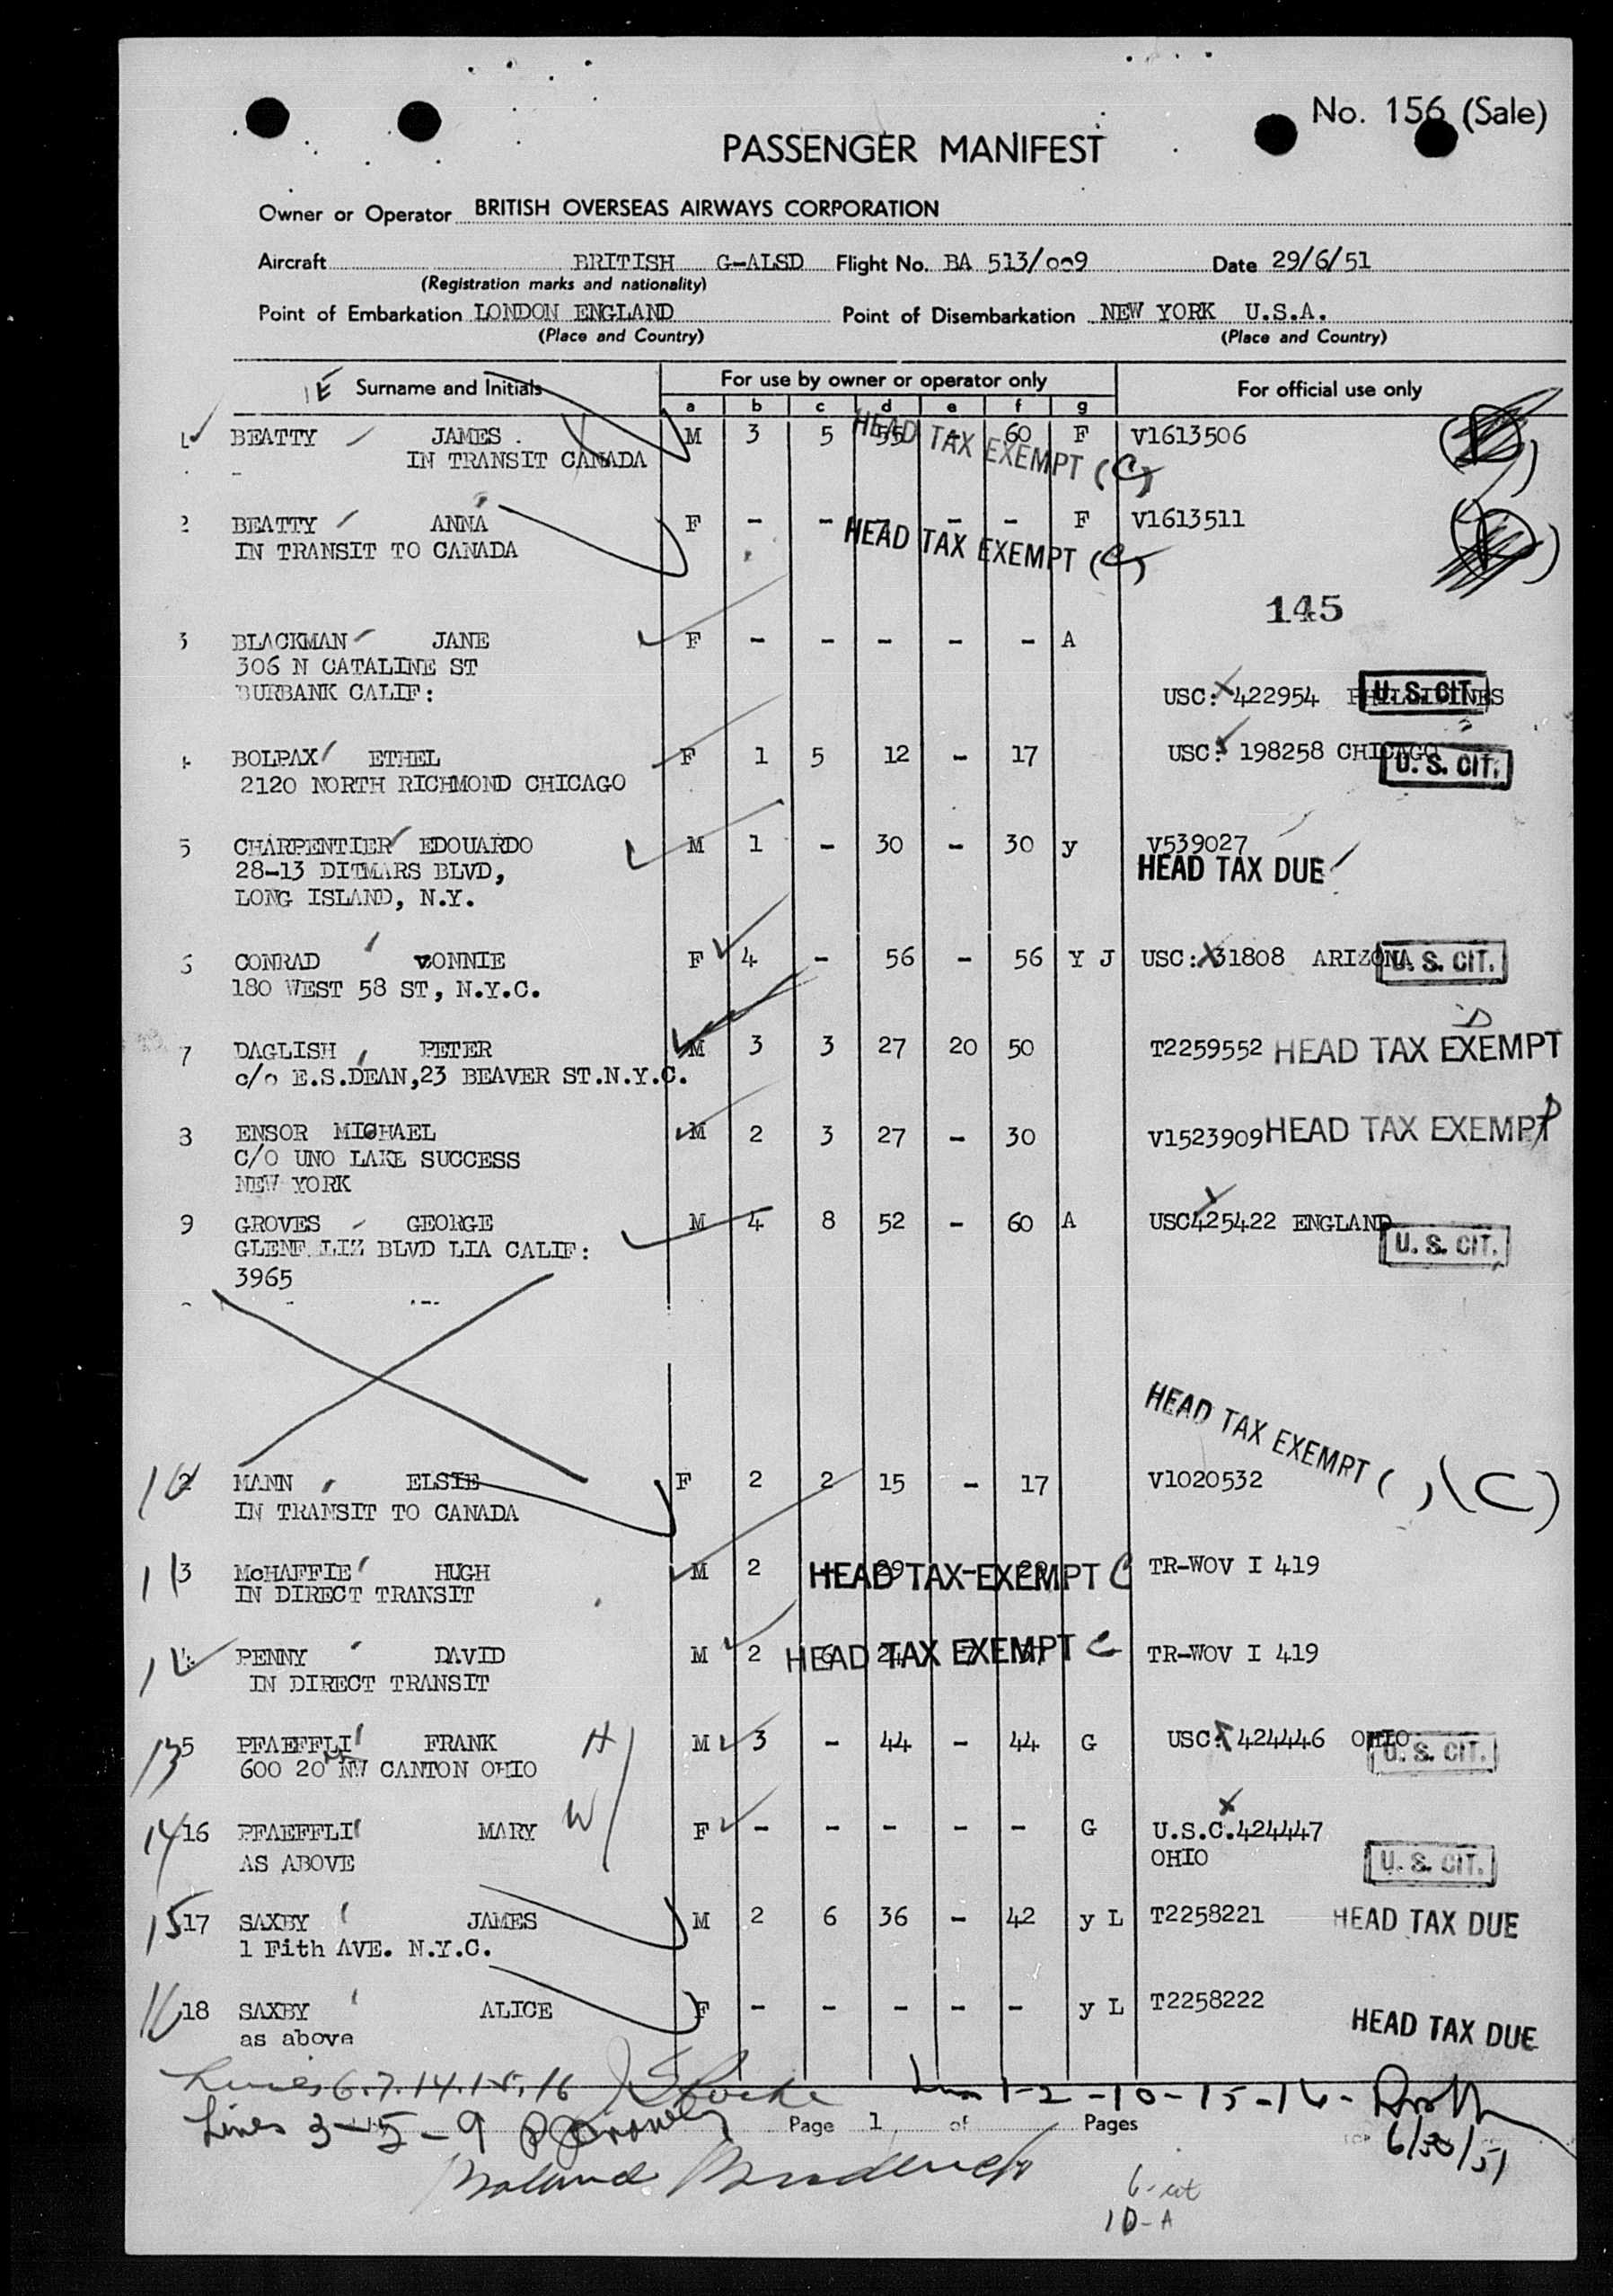 No. 156 (Sale)
PASSENGER MANIFEST
Owner or Operator BRITISH OVERSEAS AIRWAYS CORPORATION
Aircraft BRITISH G-ALSD Flight No. BA 513/009 Date 29/6/51
(Registration marks and nationality)
Point of Embarkation LONDON ENGLAND Point of Disembarkation NEW YORK U.S.A.
(Place and Country) (Place and Country)
Surname and Initials For use by owner or operator only For official use only
a b c d e f g
1 BEATTY JAMES M 3 5 55 - 60 F V1613506
IN TRANSIT CANADA HEAD TAX EXEMPT (C)
2 BEATTY ANNA F - - - - F V1613511
IN TRANSIT TO CANADA HEAD TAX EXEMPT (C)
145
3 BLACKMAN JANE F - - - - - A
306 N CATALINE ST
BURBANK CALIF: USC: 422954 PHILIPPINES U. S. CIT.
4 BOLPAX ETHEL F 1 5 12 - 17 USC: 198258 CHICAGO
2120 NORTH RICHMOND CHICAGO U. S. CIT.
5 CHARPENTIER EDOUARDO M 1 - 30 - 30 y V539027
28-13 DITMARS BLVD, HEAD TAX DUE
LONG ISLAND, N.Y.
6 CONRAD CONNIE F 4 - 56 - 56 Y J USC: 31808 ARIZONA U. S. CIT.
180 WEST 58 ST, N.Y.C.
7 DAGLISH PETER M 3 3 27 20 50 T2259552 HEAD TAX EXEMPT
c/o E.S.DEAN,23 BEAVER ST.N.Y.C.
8 ENSOR MICHAEL M 2 3 27 - 30 V1523909 HEAD TAX EXEMPT
C/O UNO LAKE SUCCESS
NEW YORK
9 GROVES GEORGE M 4 8 52 - 60 A USC425422 ENGLAND
GLENFELIZ BLVD LIA CALIF: U. S. CIT.
3965
HEAD TAX EXEMPT ( ) (C)
10 MANN ELSIE F 2 2 15 - 17 V1020532
IN TRANSIT TO CANADA
11 3 McHAFFIE HUGH M 2 - 29 - 29 HEAD TAX EXEMPT C TR-WOV I 419
IN DIRECT TRANSIT
12 PENNY DAVID M 2 HEAD TAX EXEMPT C TR-WOV I 419
IN DIRECT TRANSIT
13 5 PFAEFFLI FRANK H M 3 - 44 - 44 G USC: 424446 OHIO
600 20 NW CANTON OHIO U. S. CIT.
14 16 PFAEFFLI MARY W F - - - - - G U.S.C.424447
AS ABOVE OHIO U. S. CIT.
15 17 SAXBY JAMES M 2 6 36 - 42 y L T2258221 HEAD TAX DUE
1 Fith AVE. N.Y.C.
16 18 SAXBY ALICE F - - - - - y L T2258222
as above HEAD TAX DUE
Lines 6.7.14.15.16 1-2-10-15-16-
Lines 3-5-9 Page 1 of Pages
6/30/51
6-cit
10-A